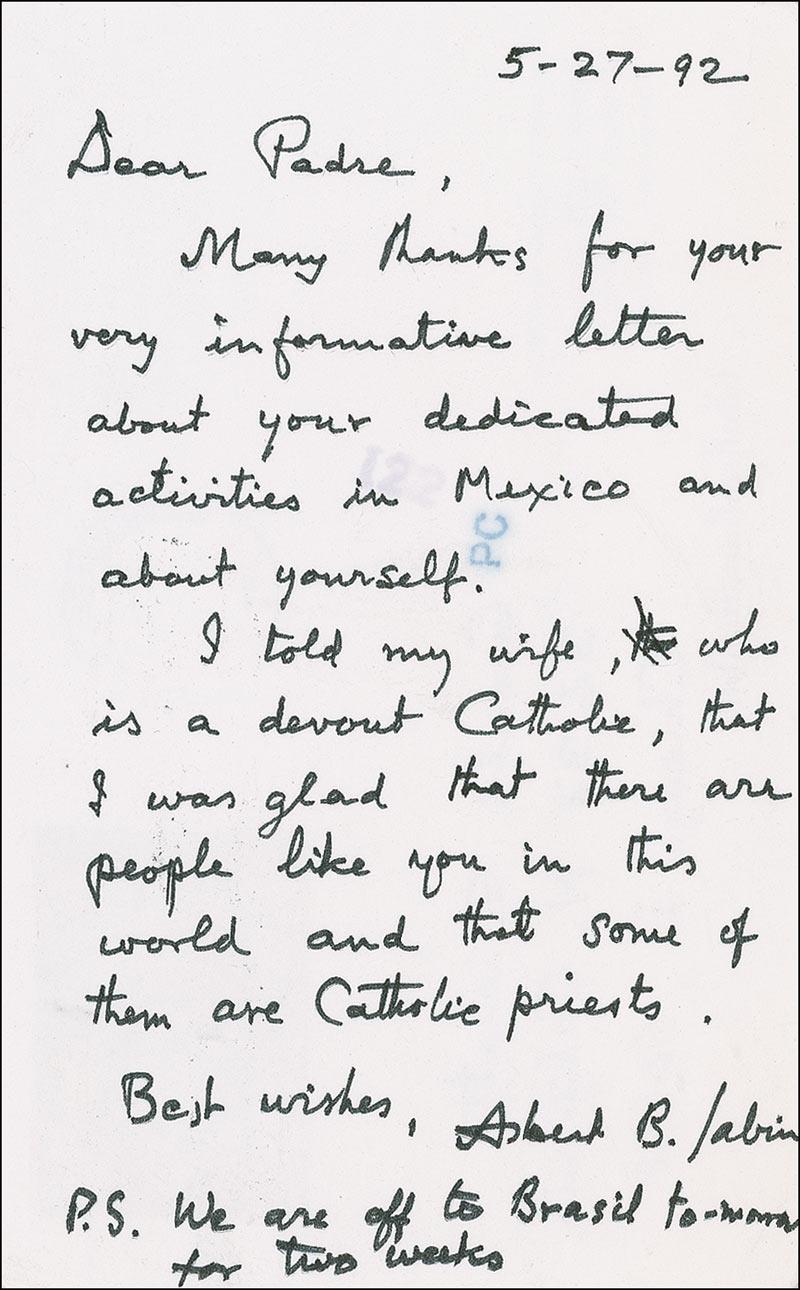 5-27-92
Dear Padre,
Many thanks for your
very informative letter
about your dedicated
activities in Mexico and
about yourself.
PC
I told my wife, who
is a devout Catholic, that
I was glad that there are
people like you in this
world and that some of
them are Catholic priests.
Best wishes, Albert B. Sabin
P.S. We are off to Brasil to-morrow
for two weeks